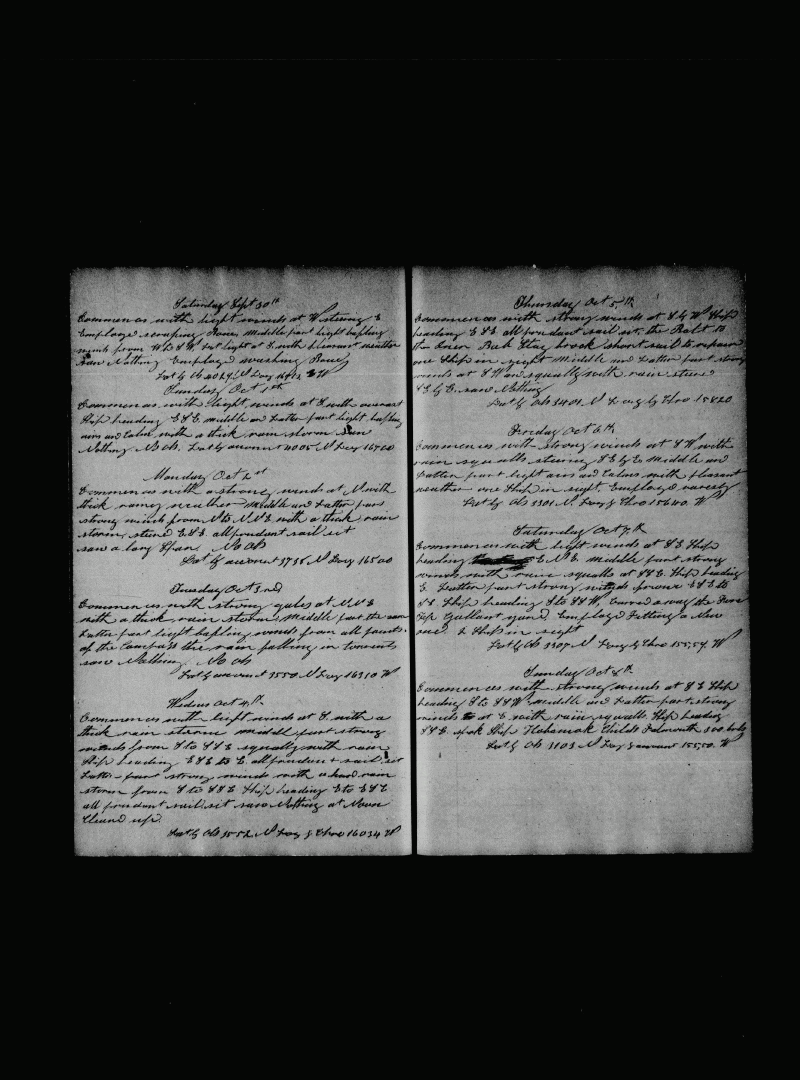 Saturday Sept 30th
Commences with light winds at W steering E
Employed scraping Bone, Middle part light baffling
winds from W to SW, Last light at S with pleasant weather
saw Nothing Employed washing Bone
Lat by Ob 4029 N Long W
Sunday Oct 1st
Commences with light winds at S with overcast
Ship heading ESE, middle and Latter part light, baffling
airs and Calm with a thick rain storm saw
Nothing No Ob. Lat by account 4005 N Long 16700
Monday Oct 2st
Commences with a strong wind at N with
thick rainy weather Middle and Latter part
strong winds from N to NNE with a thick rain
storm, steered ESE all prudent sail set
saw a long Spar No Ob
Lat by account 3738 N Long 16500
Tuesday Oct 3rd
Commences with strong gales at NNE
with a thick rain storm Middle part the same
Latter part light bafling winds from all points
of the Compass the rain falling in torrents
saw Nothing No Ob
Lat by account 3550 N Long 16310 W
Wedns Oct 4th
Commences with light winds at S. with a
thick rain storm middl part strong
winds from S to SSE squally with rain
Ship heading ESE to E all prudent sail set
Latter part strong winds with a hard rain
storm from S to SSE Ship heading E to ESE
all prudent sail set saw Nothing at Noon
Cleard up.
Lat by Ob 3552 N Long by Chro 16034 W
Thursday Oct 5th
Commences with strong winds at S by W Ship
heading ESE all prudent sail set, the Bolt to
the Back Stay brock short sail to repair
one Ship in sight Middle and Latter part strong
winds at SW and squally with rain steerd
SE by E. saw Nothing
Lat by Ob 3401 N Long by Chro 15820
Friday Oct 6th
Commences with strong winds at SW with
rain squalls steering SE by E Middle and
Latter part light airs and Calms with pleasant
weather one Ship in sight Employd
Lat by Ob 3301 N. Long by Chro 15640 W
Saturday Oct 7th
Commences with light winds at SE Ship
heading ENE Middle part strong
winds with rain squalls at SSE Ship heading
E Latter part strong winds from ESE to
SE Ship heading S to SSW, Carried away the Fore
Top Gallant yard Employd Fitting a New
one 2 Ships in sight
Lat by Ob 3307 N Long by Chro 155,54 W
Sunday Oct 8th
Commences with strong winds at SE Ship
heading S to SSW Middle and Latter part strong
winds at E with rain squalls Ship heading
SSE spok Ship Hobamok Childs Falmouth 300 brls
Lat by Ob 3103 N Long by account 155,50. W